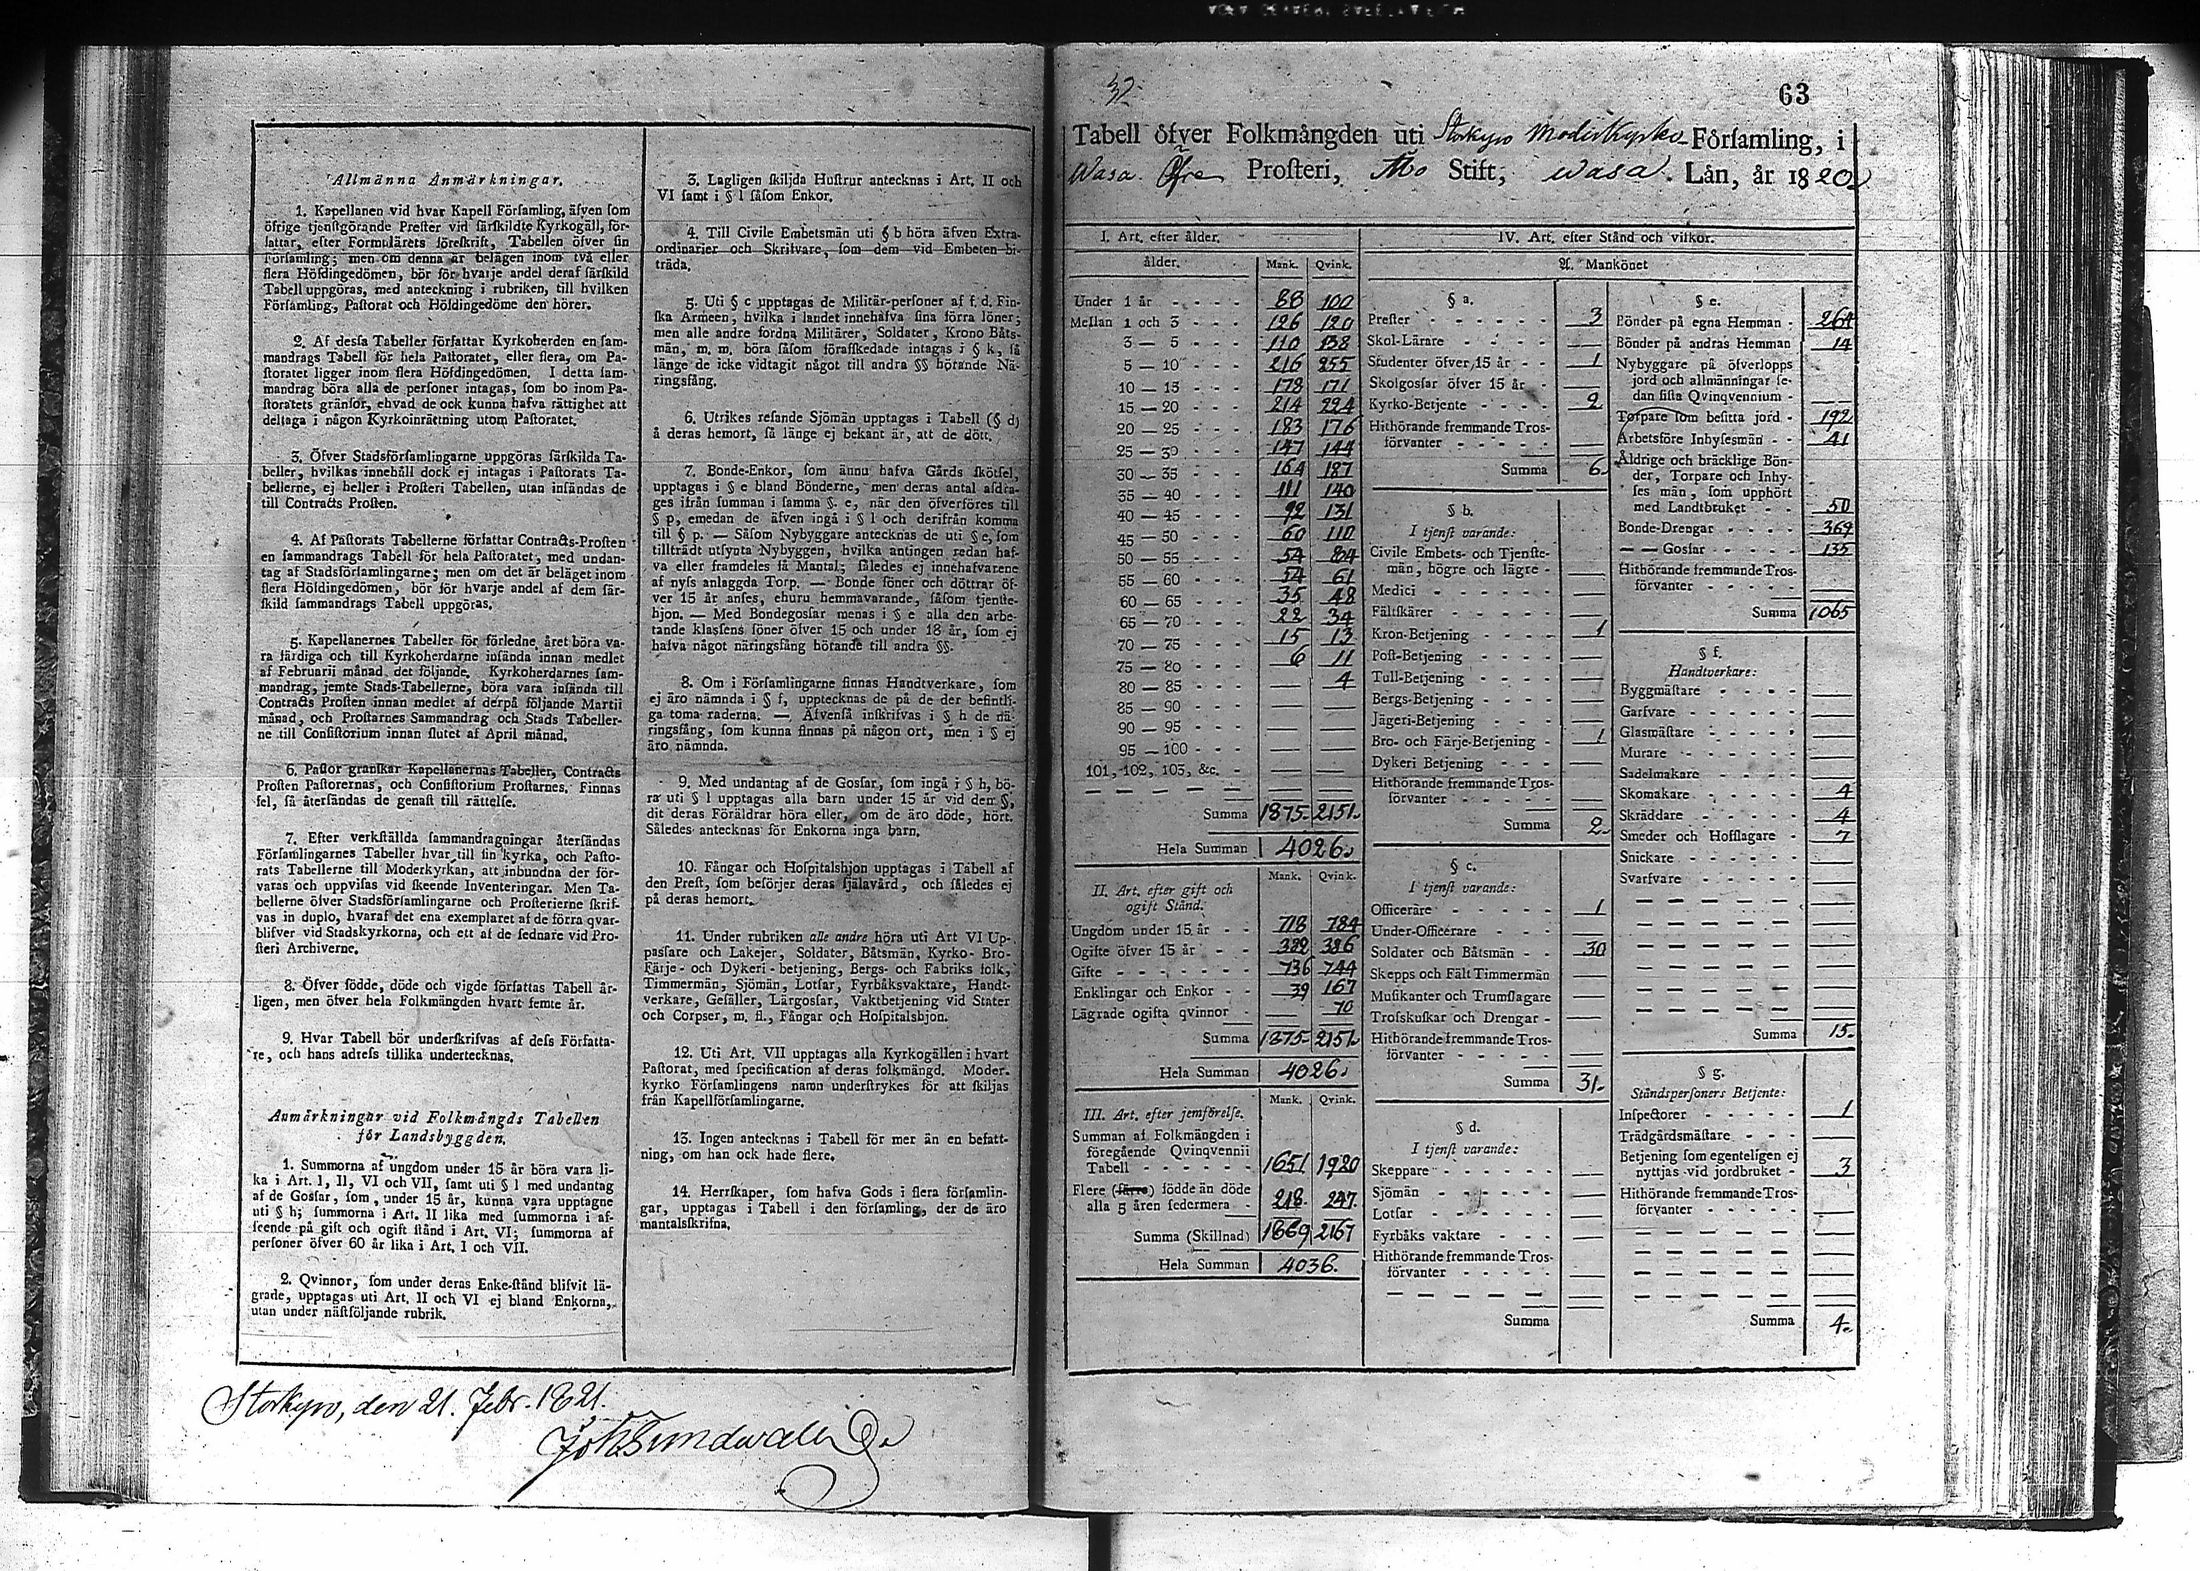 Allmänna Anmärkningar.
1. Kapellanen vid hvar Kapell Församling, äfven som
öfrige tjenstgörande Prester vid särskildte Kyrkogäll, för-
fattar, efter Formulärets föreskrift, Tabellen öfver sin
Församling; men om denna är belägen inom två eller
flera Höfdingedömen, bör för hvarje andel deraf särskild
Tabell uppgöras, med anteckning i rubriken, till hvilken
Församling, Pastorat och Höfdingedöme den hörer.
2. Af dessa Tabeller författar Kyrkoherden en sam-
mandrags Tabell för hela Pastoratet, eller flera, om Pa-
storatet ligger inom flera Höfdingedömen. I detta sam-
mandrag böra alla de personer intagas, som bo inom Pa-
storatets gränsor, ehvad de ock kunna hafva rättighet att
deltaga i någon Kyrkoinrättning utom Pastoratet.
3. Öfver Stadsförsamlingarne uppgöras särskilda Ta-
beller, hvilkas innehåll dock ej intagas i Pastorats Ta-
bellerne, ej heller i Prosteri Tabellen, utan insändas de
till Contracts Prosten.
4. Af Pastorats Tabellerne författar Contracts-Prosten
en sammandrags Tabell för hela Pastoratet, med undan-
tag af Stadsförsamlingarne; men om det är beläget inom
flera Höfdingedömen, bör för hvarje andel af dem sär-
skild sammandrags Tabell uppgöras.
5. Kapellanernes Tabeller för förledne året böra va-
ra färdiga och till Kyrkoherdarne insända innan medlet
af Februarii månad det följande. Kyrkoherdarnes sam-
mandrag, jemte Stads-Tabellerne, böra vara insända till
Contracts Prosten innan medlet af derpå följande Martii
månad, och Prostarnes Sammandrag och Stads Tabeller-
ne till Consistorium innan slutet af April månad.
6. Pastor granskar Kapellanernas Tabeller, Contracts
Prosten Pastorernas, och Consistorium Prostarnes. Finnas
fel, så återsändas de genast till rättelse.
7. Efter verkställda sammandragningar återsändas
Församlingarnes Tabeller hvar till sin kyrka, och Pasto-
rats Tabellerne till Moderkyrkan, att inbundna der för-
varas och uppvisas vid skeende Inventeringar. Men Ta-
bellerne öfver Stadsförsamlingarne och Prosterierne skrif-
vas in duplo, hvaraf det ena exemplaret af de förra qvar-
blifver vid Stadskyrkorna, och ett af de sednare vid Pro-
steri Archiverne.
8. Öfver födde, döde och vigde författas Tabell år-
ligen, men öfver hela Folkmängden hvart femte år.
9. Hvar Tabell bör underskrifvas af dess Författa-
re, och hans adress tillika undertecknas.
Anmärkningar vid Folkmängds Tabellen
för Landsbyggden.
1. Summorna af ungdom under 15 år böra vara li-
ka i Art. I, II, VI och VII, samt uti § l med undantag
af de Gossar, som, under 15 år, kunna vara upptagne
uti § h; summorna i Art. II lika med summorna i af-
seende på gift och ogift stånd i Art. VI; summorna af
personer öfver 60 år lika i Art. I och VII.
2. Qvinnor, som under deras Enke-stånd blifvit lä-
grade, upptagas uti Art. II och VI ej bland Enkorna,
utan under nästföljande rubrik.
3. Lagligen skiljda Hustrur antecknas i Art. II och
VI samt i § l såsom Enkor.
4. Till Civile Embetsmän uti § b höra äfven Extra-
ordinarier och Skrifvare, som dem vid Embeten bi-
träda.
5. Uti § c upptagas de Militär-personer af f. d. Fin-
ska Armeen, hvilka i landet innehafva sina förra löner;
men alle andre fordna Militärer, Soldater, Krono Båts-
män, m. m. böra såsom förafskedade intagas i § k, så
länge de icke vidtagit något till andra §§ hörande Nä-
ringsfång.
6. Utrikes resande Sjömän upptagas i Tabell (§ d)
å deras hemort, så länge ej bekant är, att de dött.
7. Bonde-Enkor, som ännu hafva Gårds skötsel,
upptagas i § e bland Bönderne, men deras antal afdra-
ges ifrån summan i samma §. e, när den öfverföres till
§ p, emedan de äfven ingå i § l och derifrån komma
till § p. — Såsom Nybyggare antecknas de uti § e, som
tillträdt utsynta Nybyggen, hvilka antingen redan haf-
va eller framdeles få Mantal; således ej innehafvarene
af nyss anlaggda Torp. — Bonde söner och döttrar öf-
ver 15 år anses, ehuru hemmavarande, såsom tjenste-
hjon. — Med Bondegossar menas i § e alla den arbe-
tande klassens söner öfver 15 och under 18 år, som ej
hafva något näringsfång hörande till andra §§.
8. Om i Församlingarne finnas Handtverkare, som
ej äro nämnda i § f, upptecknas de på de der befintli-
ga toma raderna. — Äfvenså inskrifvas i § h de nä-
ringsfång, som kunna finnas på någon ort, men i § ej
äro nämnda.
9. Med undantag af de Gossar, som ingå i § h, bö-
ra uti § l upptagas alla barn under 15 år vid den §,
dit deras Föräldrar höra eller, om de äro döde, hört.
Således antecknas för Enkorna inga barn.
10. Fångar och Hospitalshjon upptagas i Tabell af
den Prest, som besörjer deras själavård, och således ej
på deras hemort.
11. Under rubriken alle andre höra uti Art VI Up-
passare och Lakejer, Soldater, Båtsmän, Kyrko- Bro-
Färje- och Dykeri-betjening, Bergs- och Fabriks folk,
Timmermän, Sjömän, Lotsar, Fyrbåksvaktare, Handt-
verkare, Gesäller, Lärgossar, Vaktbetjening vid Stater
och Corpser, m. fl., Fångar och Hospitalshjon.
12. Uti Art. VII upptagas alla Kyrkogällen i hvart
Pastorat, med specification af deras folkmängd. Moder-
kyrko Församlingens namn understrykes för att skiljas
från Kapellförsamlingarne.
13. Ingen antecknas i Tabell för mer än en befatt-
ning, om han ock hade flere.
14. Herrskaper, som hafva Gods i flera församlin-
gar, upptagas i Tabell i den församling, der de äro
mantalsskrifna.
Storkyro, den 21. Febr. 1821.
32.
63
Tabell öfver Folkmängden uti Storkyro Moderkyrko-Församling, i
Wasa Öfre Prosteri, Åbo Stift, Wasa Län, år 1820.
I. Art. efter ålder.
ålder. Mank. Qvink.
Under 1 år 88 100
Mellan 1 och 3 126 120
3 — 5 110 138
5 — 10 216 255
10 — 15 178 171
15 — 20 214 224
20 — 25 183 176
25 — 30 147 144
30 — 35 164 187
35 — 40 111 140
40 — 45 92 131
45 — 50 60 110
50 — 55 54 84
55 — 60 54 61
60 — 65 35 48
65 — 70 22 34
70 — 75 15 13
75 — 80 6 11
80 — 85 — 4
85 — 90 — —
90 — 95 — —
95 — 100 — —
101, 102, 103, &c. — —
Summa 1875. 2151.
Hela Summan 4026.
Mank. Qvink.
II. Art. efter gift och
ogift Stånd.
Ungdom under 15 år 718 784
Ogifte öfver 15 år 382 386
Gifte 736 744
Enklingar och Enkor 39 167
Lägrade ogifta qvinnor — 70
Summa 1875 2151.
Hela Summan 4026.
Mank. Qvink.
III. Art. efter jemförelse.
Summan af Folkmängden i
föregående Qvinqvennii
Tabell 1651 1920
Flere (färre) födde än döde
alla 5 åren sedermera 218. 247.
Summa (Skillnad) 1869 2167
Hela Summan 4036.
IV. Art. efter Stånd och vilkor.
A. Mankönet
§ a.
Prester 3
Skol-Lärare —
Studenter öfver 15 år 1
Skolgossar öfver 15 år —
Kyrko-Betjente 2
Hithörande fremmande Tros-
förvanter —
Summa 6.
§ b.
I tjenst varande:
Civile Embets- och Tjenste-
män, högre och lägre —
Medici —
Fältskärer —
Kron-Betjening 1
Post-Betjening —
Tull-Betjening —
Bergs-Betjening —
Jägeri-Betjening —
Bro- och Färje-Betjening 1
Dykeri Betjening —
Hithörande fremmande Tros-
förvanter —
Summa 2.
§ c.
I tjenst varande:
Officerare 1
Under-Officerare —
Soldater och Båtsmän 30
Skepps och Fält Timmermän —
Musikanter och Trumslagare —
Trosskuskar och Drengar —
Hithörande fremmande Tros-
förvanter —
Summa 31.
§ d.
I tjenst varande:
Skeppare —
Sjömän —
Lotsar —
Fyrbåks vaktare —
Hithörande fremmande Tros-
förvanter —
Summa
§ e.
Bönder på egna Hemman 264
Bönder på andras Hemman 14
Nybyggare på öfverlopps
jord och allmänningar se-
dan sista Qvinqvennium —
Torpare som besitta jord 192
Arbetsföre Inhysesmän 41
Åldrige och bräcklige Bön-
der, Torpare och Inhy-
ses män, som upphört
med Landtbruket 50
Bonde-Drengar 369
— — Gossar 135
Hithörande fremmande Tros-
förvanter —
Summa 1065
§ f.
Handtverkare:
Byggmästare —
Garfvare —
Glasmästare —
Murare —
Sadelmakare —
Skomakare 4
Skräddare 4
Smeder och Hofslagare 7
Snickare —
Svarfvare —
Summa 15.
§ g.
Ståndspersoners Betjente:
Inspectorer 1
Trädgårdsmästare —
Betjening som egenteligen ej
nyttjas vid jordbruket 3
Hithörande fremmande Tros-
förvanter —
Summa 4.